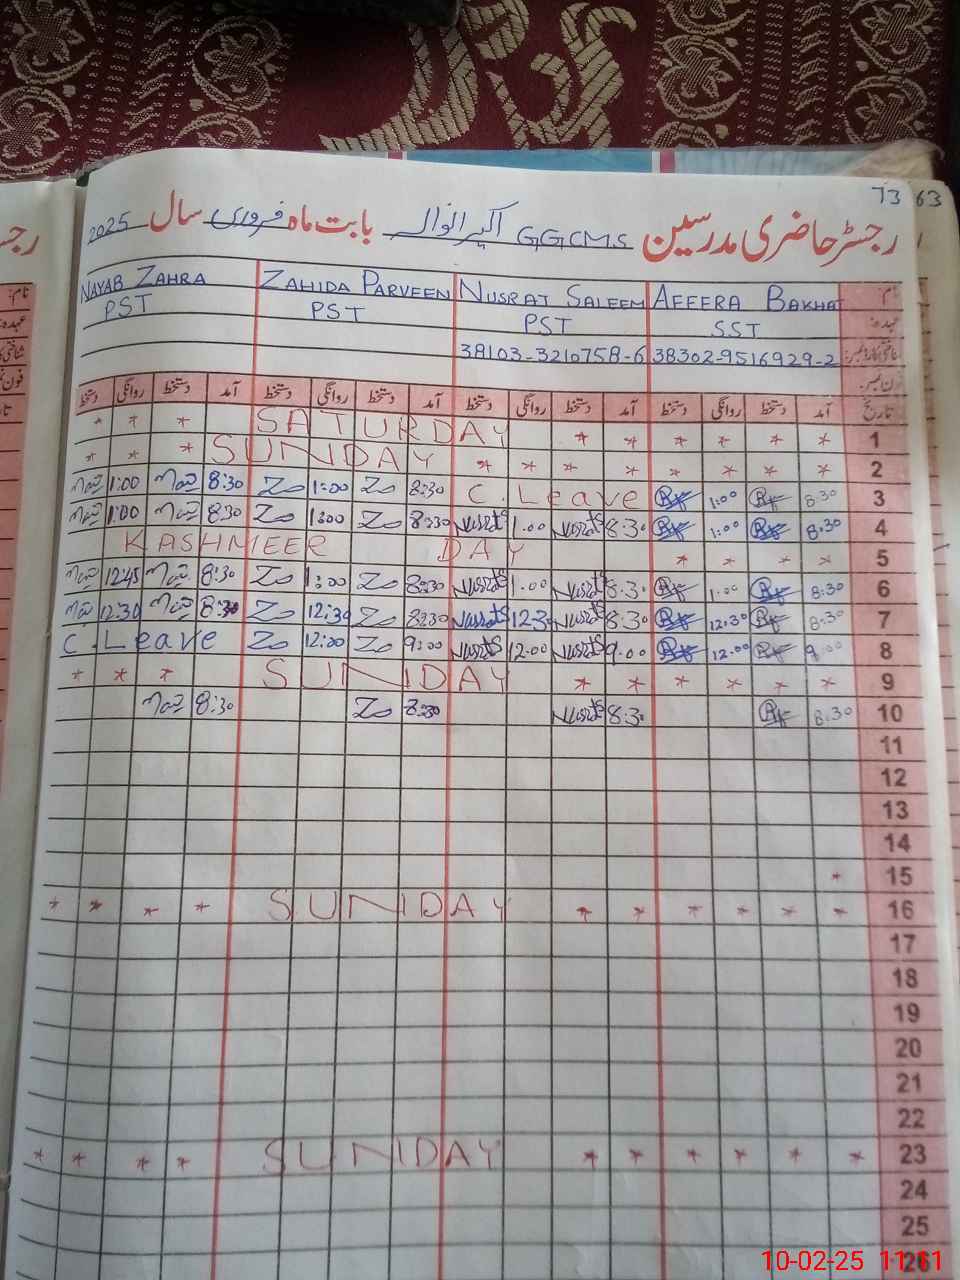 73 63
رجسٹر حاضری مدرسین G.G.C.M.S اکبر انوالہ بابت ماہ فروری سال 2025
NAYAB ZAHRA ZAHIDA PARVEEN NUSRAT SALEEM AFEERA BAKHAT نام:
PST PST PST SST عہدہ:
38103-3210758-6 38302-9516929-2
فون نمبر:
دستخط روانگی دستخط آمد دستخط روانگی دستخط آمد دستخط روانگی دستخط آمد دستخط روانگی دستخط آمد تاریخ
* * * SATURDAY * * * * * * 1
* * * SUNDAY * * * * * * * * 2
1:00 8:30 1:00 8:30 C. Leave 1:00 8:30 3
1:00 8:30 1:00 8:30 Nusrat 1.00 Nusrat 8.30 1:00 8:30 4
KASHMEER DAY * * * * 5
12:45 8:30 1:00 8:30 Nusrat 1.00 Nusrat 8.30 1:00 8:30 6
12:30 8:30 12:30 8:30 Nusrat 12.30 Nusrat 8.30 12:30 8:30 7
C. Leave 12:00 9:00 Nusrat 12.00 Nusrat 9.00 12:00 9:00 8
* * * SUNDAY * * * * * * 9
8:30 8:30 Nusrat 8.30 8:30 10
11
12
13
14
* 15
* * * * SUNDAY * * * * * * 16
17
18
19
20
21
22
* * * * SUNDAY * * * * * * 23
24
25
26
10-02-25 11:11